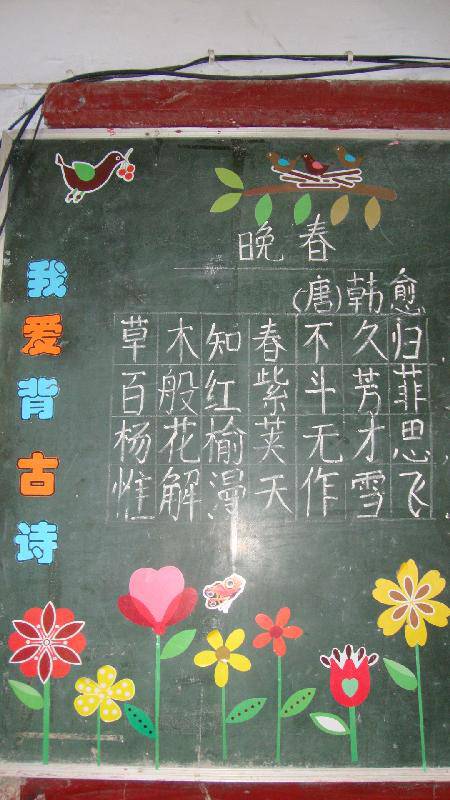 我爱背古诗
晚春
(唐)韩愈
草木知春不久归,
百般红紫斗芳菲
杨花榆荚无才思,
惟解漫天作雪飞